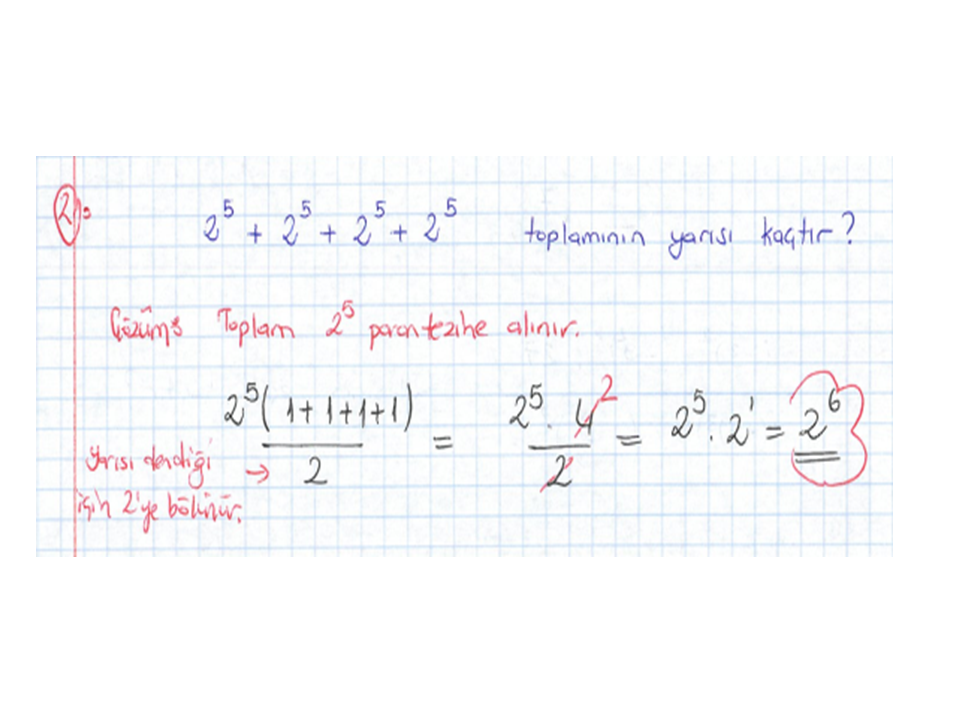 2): 2⁵ + 2⁵ + 2⁵ + 2⁵ toplamının yarısı kaçtır?
Çözüm: Toplam 2⁵ parantezine alınır.
2⁵(1+1+1+1) / 2 = 2⁵ . 4 2 / 2 = 2⁵ . 2¹ = 2⁶
Yarısı dendiği →
için 2'ye bölünür.